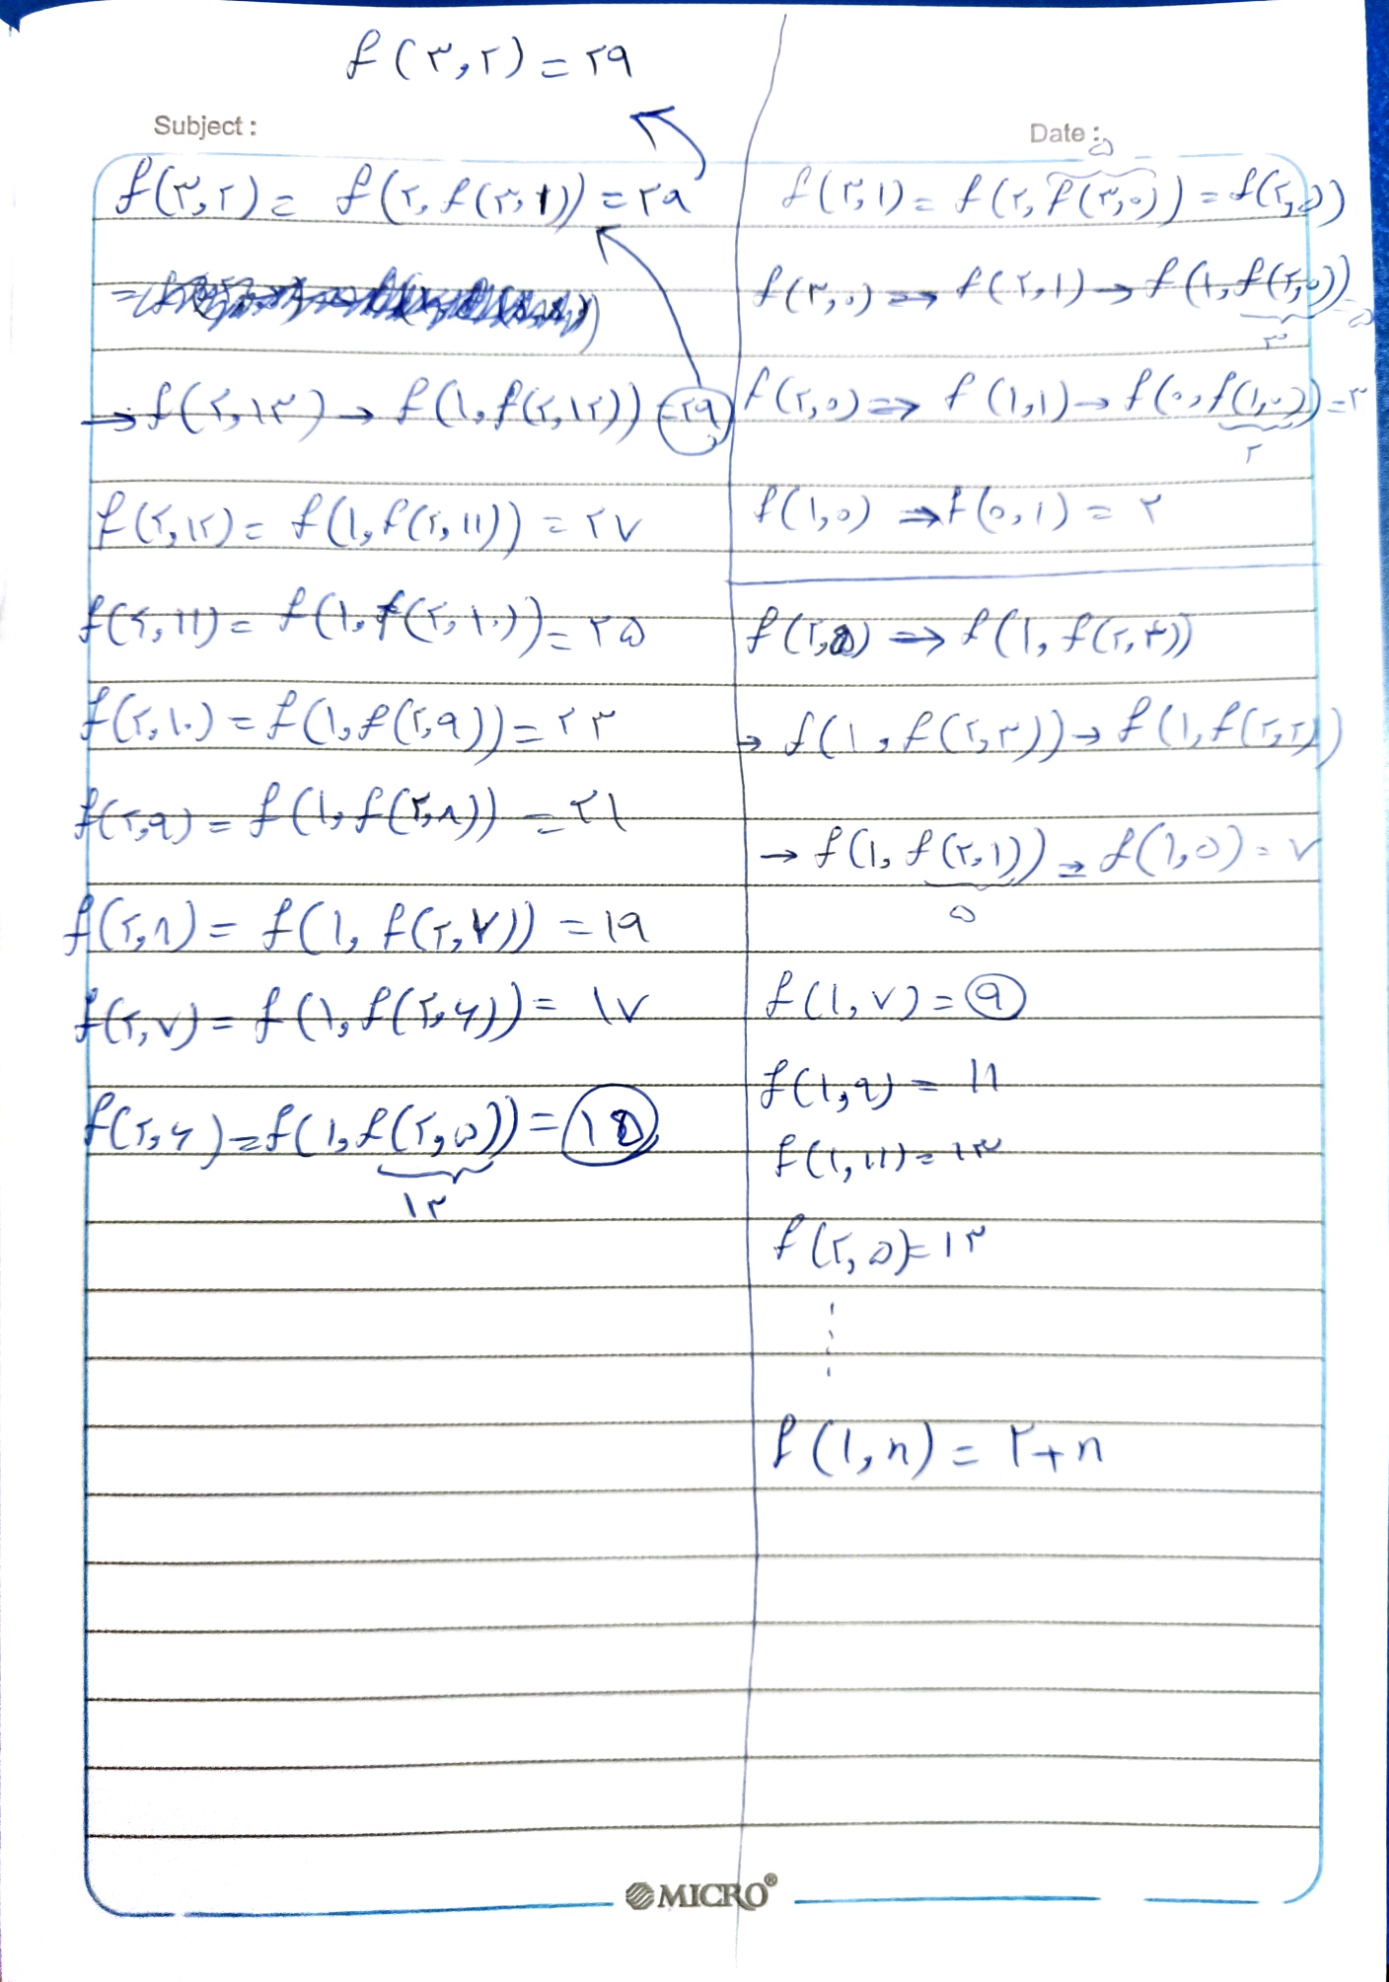 f(۳,۲) = ۲۹
Subject :
Date :
f(۳,۲) = f(۲, f(۳,۱)) = ۲۹
→ f(۲,۱۳) → f(۱, f(۲,۱۲)) = ۲۹
f(۲,۱۲) = f(۱, f(۲,۱۱)) = ۲۷
f(۲,۱۱) = f(۱, f(۲,۱۰)) = ۲۵
f(۲,۱۰) = f(۱, f(۲,۹)) = ۲۳
f(۲,۹) = f(۱, f(۲,۸)) = ۲۱
f(۲,۸) = f(۱, f(۲,۷)) = ۱۹
f(۲,۷) = f(۱, f(۲,۶)) = ۱۷
f(۲,۶) = f(۱, f(۲,۵)) = ۱۵
۱۳
۵
f(۳,۱) = f(۲, f(۳,۰)) = f(۲,۵)
f(۳,۰) ⇒ f(۲,۱) → f(۱, f(۲,۰)) = ۵
۳
f(۲,۰) ⇒ f(۱,۱) → f(۰, f(۱,۰)) = ۳
۲
f(۱,۰) ⇒ f(۰,۱) = ۲
f(۲,۵) ⇒ f(۱, f(۲,۴))
→ f(۱, f(۲,۳)) → f(۱, f(۲,۲))
→ f(۱, f(۲,۱)) = f(۱,۵) = ۷
۵
f(۱,۷) = ۹
f(۱,۹) = ۱۱
f(۱,۱۱) = ۱۳
f(۲,۵) = ۱۳
f(۱,n) = ۲+n
MICRO®